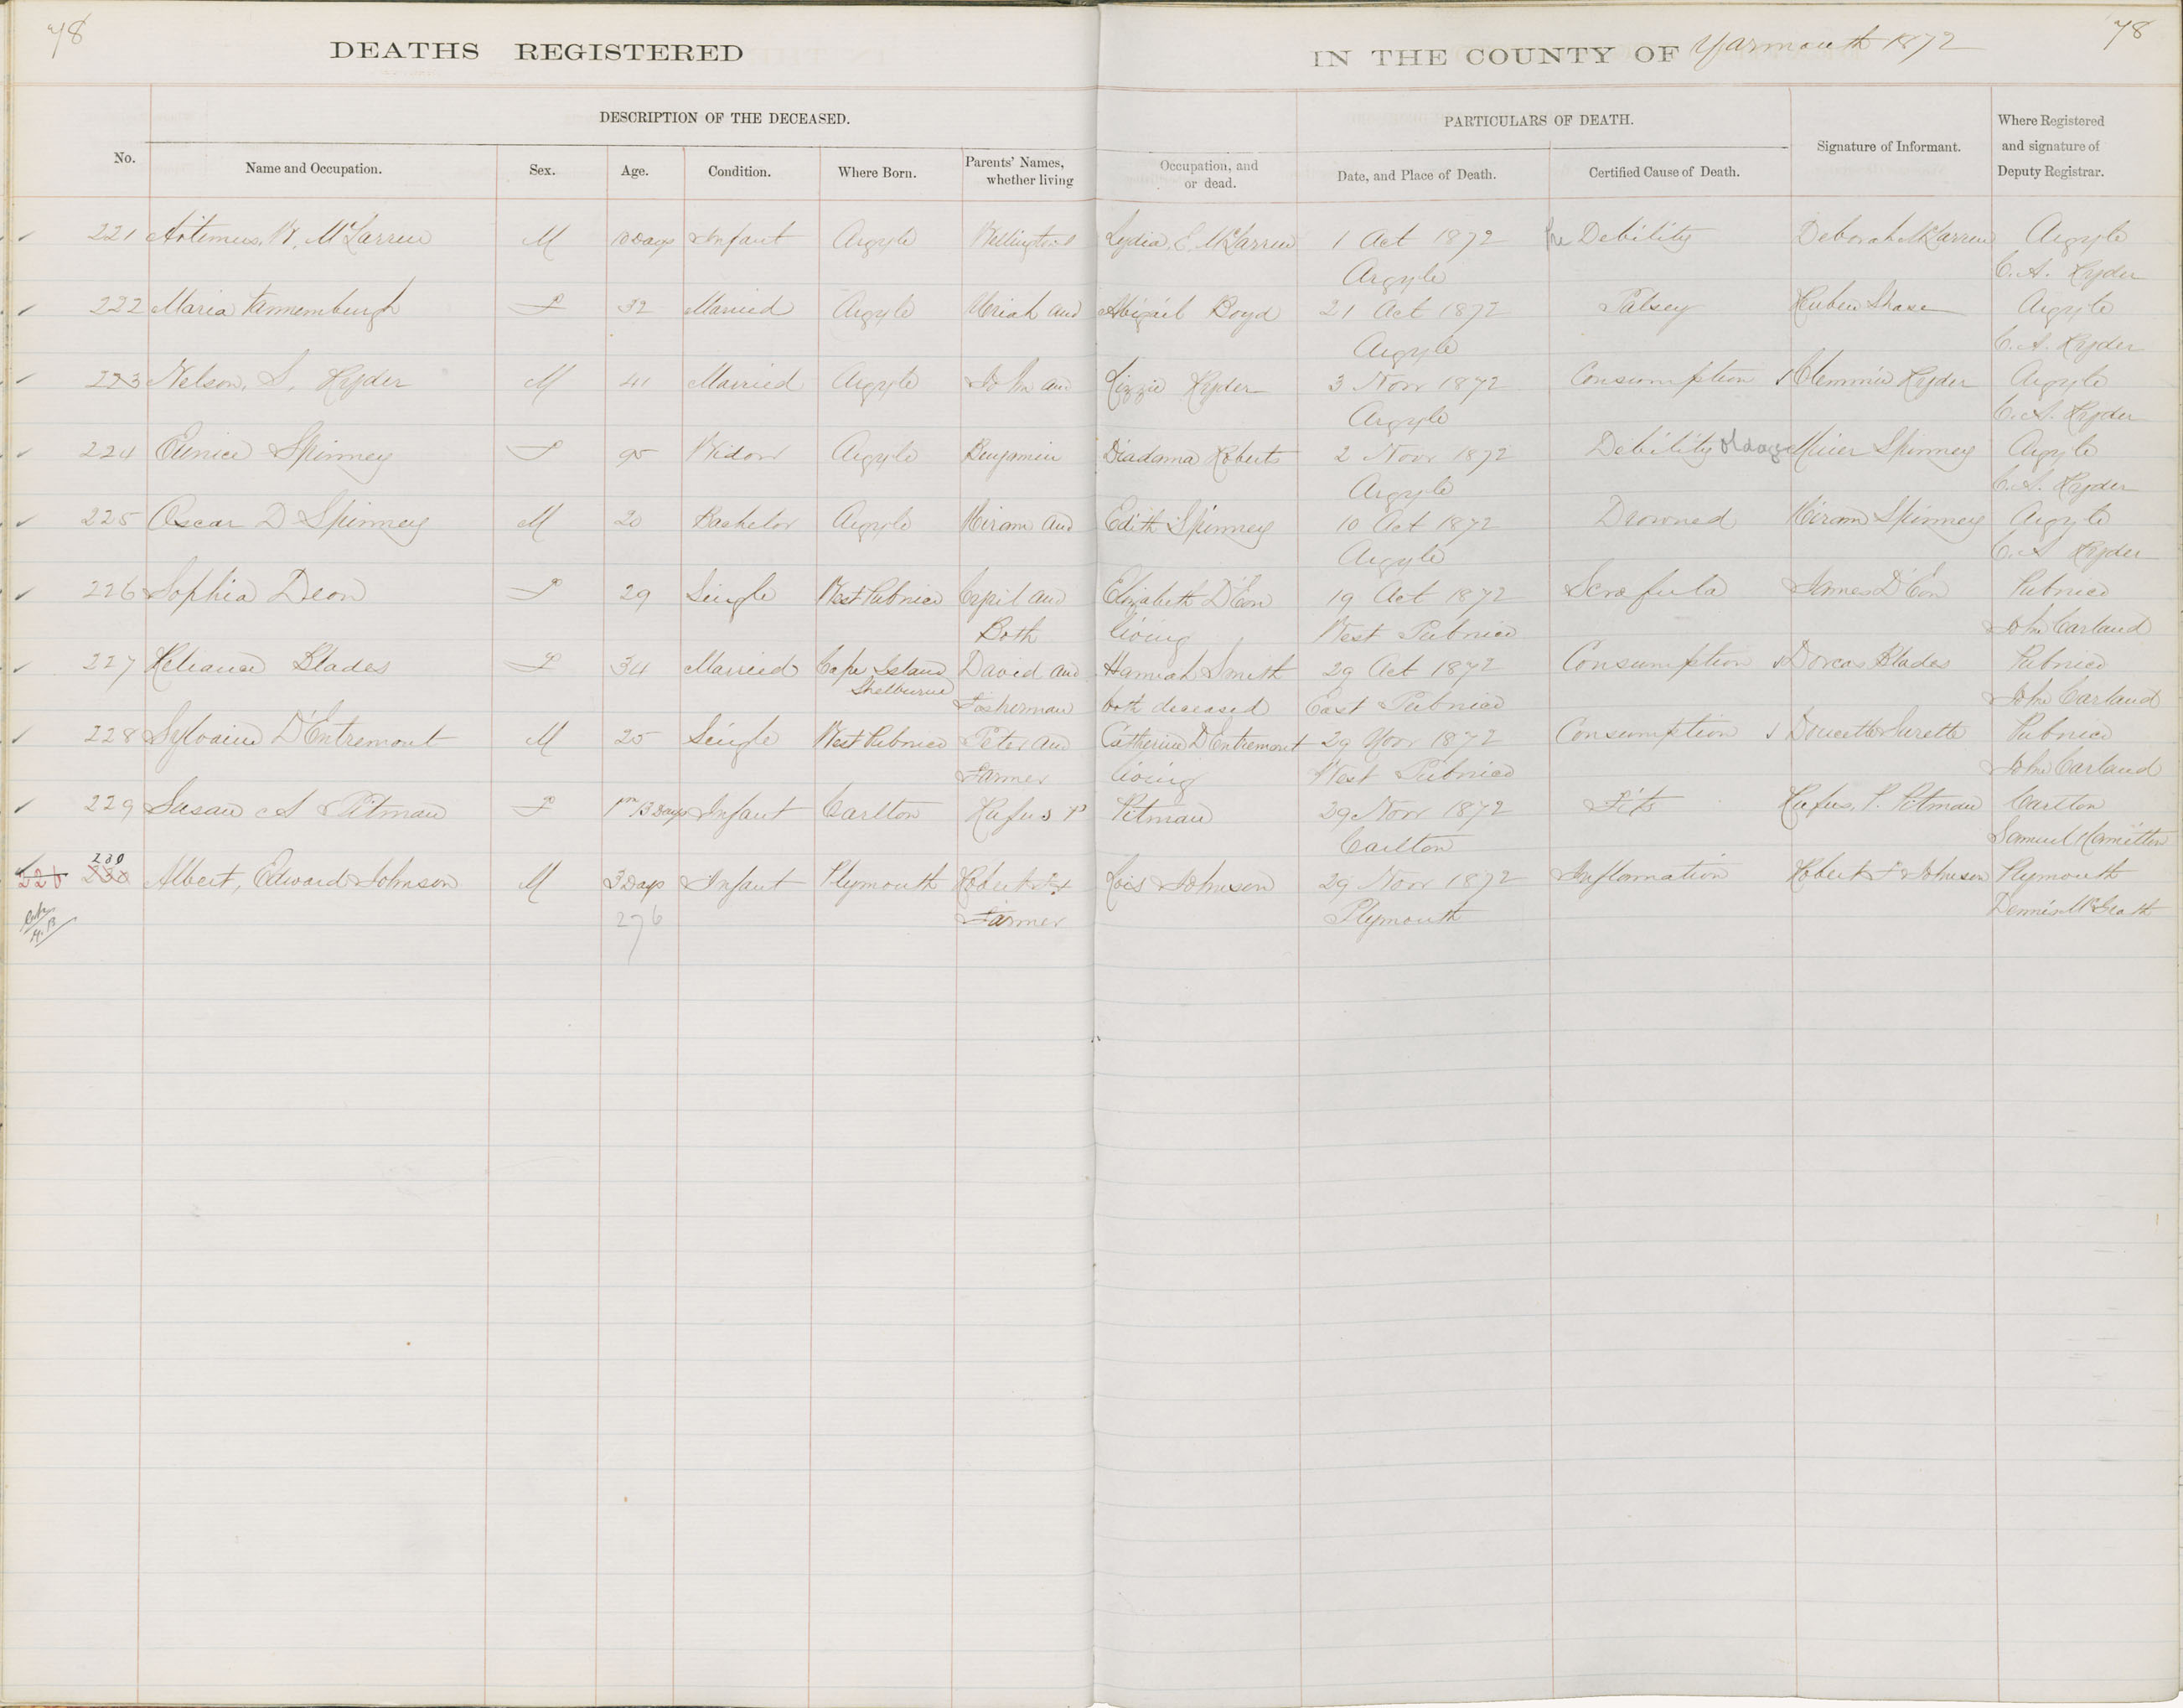 78
78
DEATHS REGISTERED
IN THE COUNTY OF Yarmouth 1872
DESCRIPTION OF THE DECEASED.
PARTICULARS OF DEATH.
No.
Name and Occupation.
Sex.
Age.
Condition.
Where Born.
Parents' Names,
whether living
Occupation, and
or dead.
Date, and Place of Death.
Certified Cause of Death.
Signature of Informant.
Where Registered
and signature of
Deputy Registrar.
221 Artimus. W. McLarren M 10 Days Infant Argyle Wellington & Lydia. E. McLarren 1 Oct 1872 Debility Deborah McLarren Argyle
Argyle C. A. Ryder
222 Maria Vannemburgh F 32 Married Argyle Uriah and Abigail Boyd 21 Oct 1872 Palsey Reuben Argyle
Argyle C. A. Ryder
223 Nelson. S. Ryder M 41 Married Argyle John and Lizzie Ryder 3 Nov 1872 Consumption Clemmie Ryder Argyle
Argyle C. A. Ryder
224 Eunice Spinney F 95 Widow Argyle Benjamin Diadama Roberts 2 Nov 1872 Debility old age Spinney Argyle
Argyle C. A. Ryder
225 Oscar D Spinney M 20 Bachelor Argyle Hiram and Edith Spinney 10 Oct 1872 Drowned Hiram Spinney Argyle
Argyle C. A Ryder
226 Sophia Deon F 29 Single West Pubnico and Elizabeth D'Eon 19 Oct 1872 Scrofula James D'Eon Pubnico
Both living West Pubnico John Carland
227 Reliance Blades F 34 Married Cape Island David and Hannah Smith 29 Oct 1872 Consumption Dorcas Blades Pubnico
Shelburne Fisherman both deceased East Pubnico John Carland
228 Sylvaine D'Entremont M 25 Single West Pubnico Peter and Catherine D'Entremont 29 Nov 1872 Consumption Doucette Surette Pubnico
Farmer living West Pubnico John Carland
229 Susan A Pitman F 1m 13 Days Infant Carlton Rufus P Pitman 29 Nov 1872 Fits Rufus. P. Pitman Carlton
Carlton Samuel Hamilton
230
220 230 Albert, Edward Johnson M 3 Days Infant Plymouth Robert F & Lois Johnson 29 Nov 1872 Inflamation Robert F Johnson Plymouth
276 Farmer Plymouth Dennis McGrath